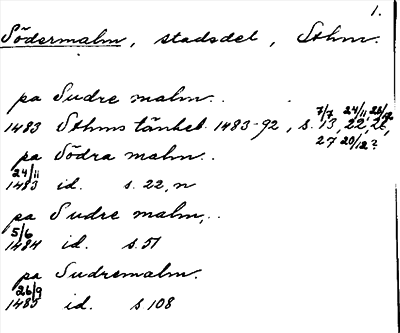 1.
Södermalm, stadsdel, Sthm.
pa Sudre malm..
7/7 24/11 28/12
1483 Sthms tänkeb. 1483-92, s. 13, 22, 26,
27 20/12?
pa Södra malm..
24/11
1483 id. s. 22, n
pa Sudre malm,..
5/6
1484 id. s. 51
pa Sudremalm.
26/9
1485 id. s 108